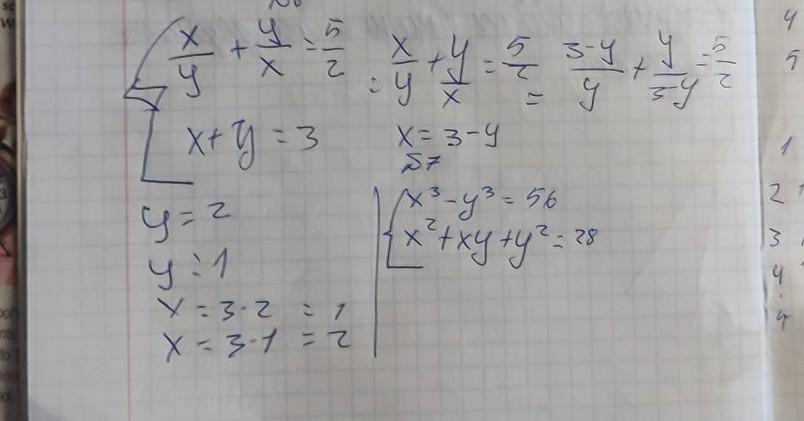 x/y + y/x = 5/2 = x/y + y/x = 5/2 = 3-y/y + y/3-y = 5/2
x + y = 3 x = 3 - y
y = 2
y = 1
x = 3 - 2 = 1
x = 3 - 1 = 2
57
x³ - y³ = 56
x² + xy + y² = 28
4
5
1
2
3
4
4